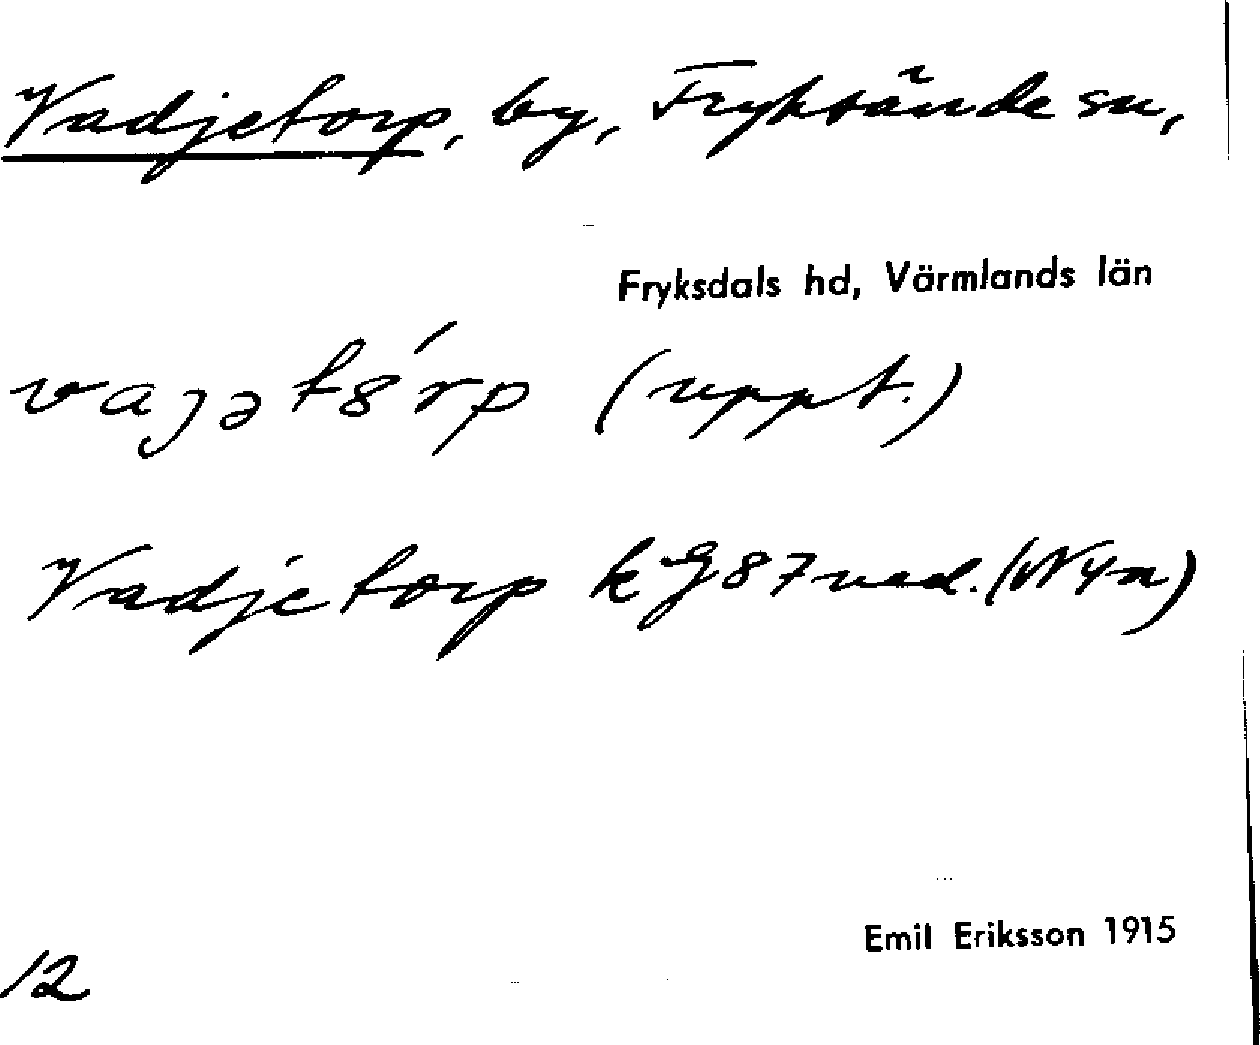 Vadjetorp, by, Fryksände sn,
Fryksdals hd, Värmlands län
vajət8́rp (uppt.)
Vadjetorp
Emil Eriksson 1915
12